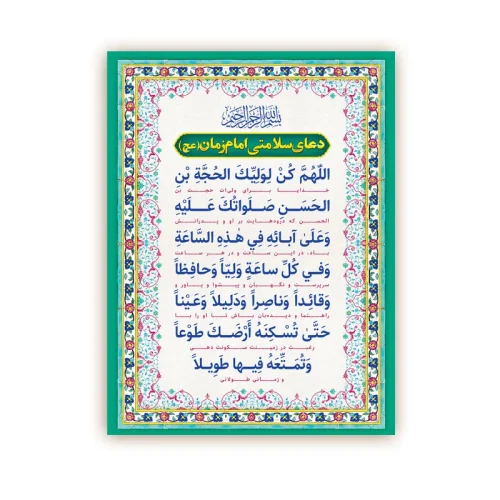 بسم الله الرحمن الرحیم
دعای سلامتی امام زمان (عج)
اللّهُمَّ كُنْ لِوَلِيِّكَ الحُجَّةِ بْنِ
خدایا برای ولی‌ات حجت بن
الحَسَنِ صَلَواتُكَ عَلَيْهِ
الحسن که درودهایت بر او و پدرانش
وَعَلىٰ آبائِهِ فِي هٰذِهِ السَّاعَةِ
باد، در این ساعت و در هر ساعت
وَفِي كُلِّ ساعَةٍ وَلِيّاً وَحافِظاً
سرپرست و نگهبان و پیشوا و یاور و
وَقائِداً وَناصِراً وَدَلِيلاً وَعَيْناً
راهنما و دیده‌بان باش تا او را با
حَتَّىٰ تُسْكِنَهُ أَرْضَكَ طَوْعاً
رغبت در زمینت سکونت دهی
وَتُمَتِّعَهُ فِيها طَوِيلاً
و زمانی طولانی